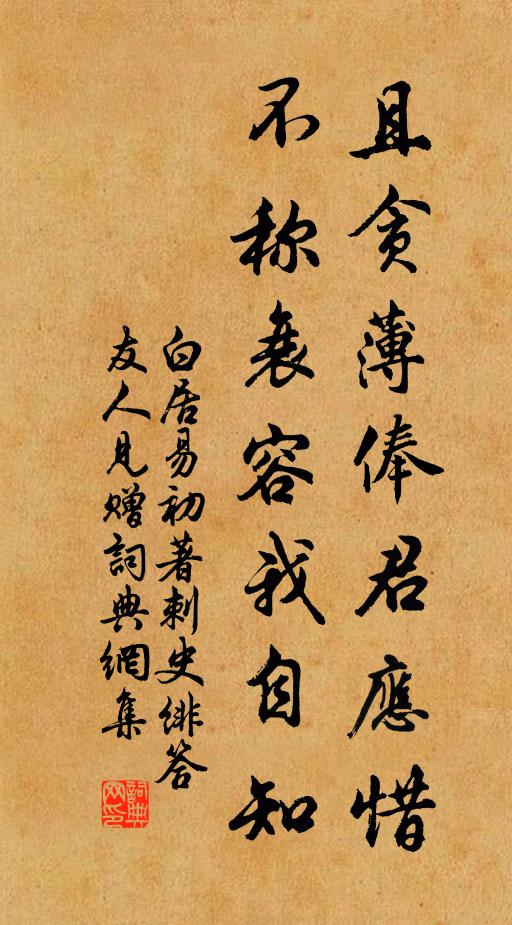 且贪薄俸君應惜
不称衰容我自知
白居易初著刺史緋答
友人見贈詞典網集
詞典
网印